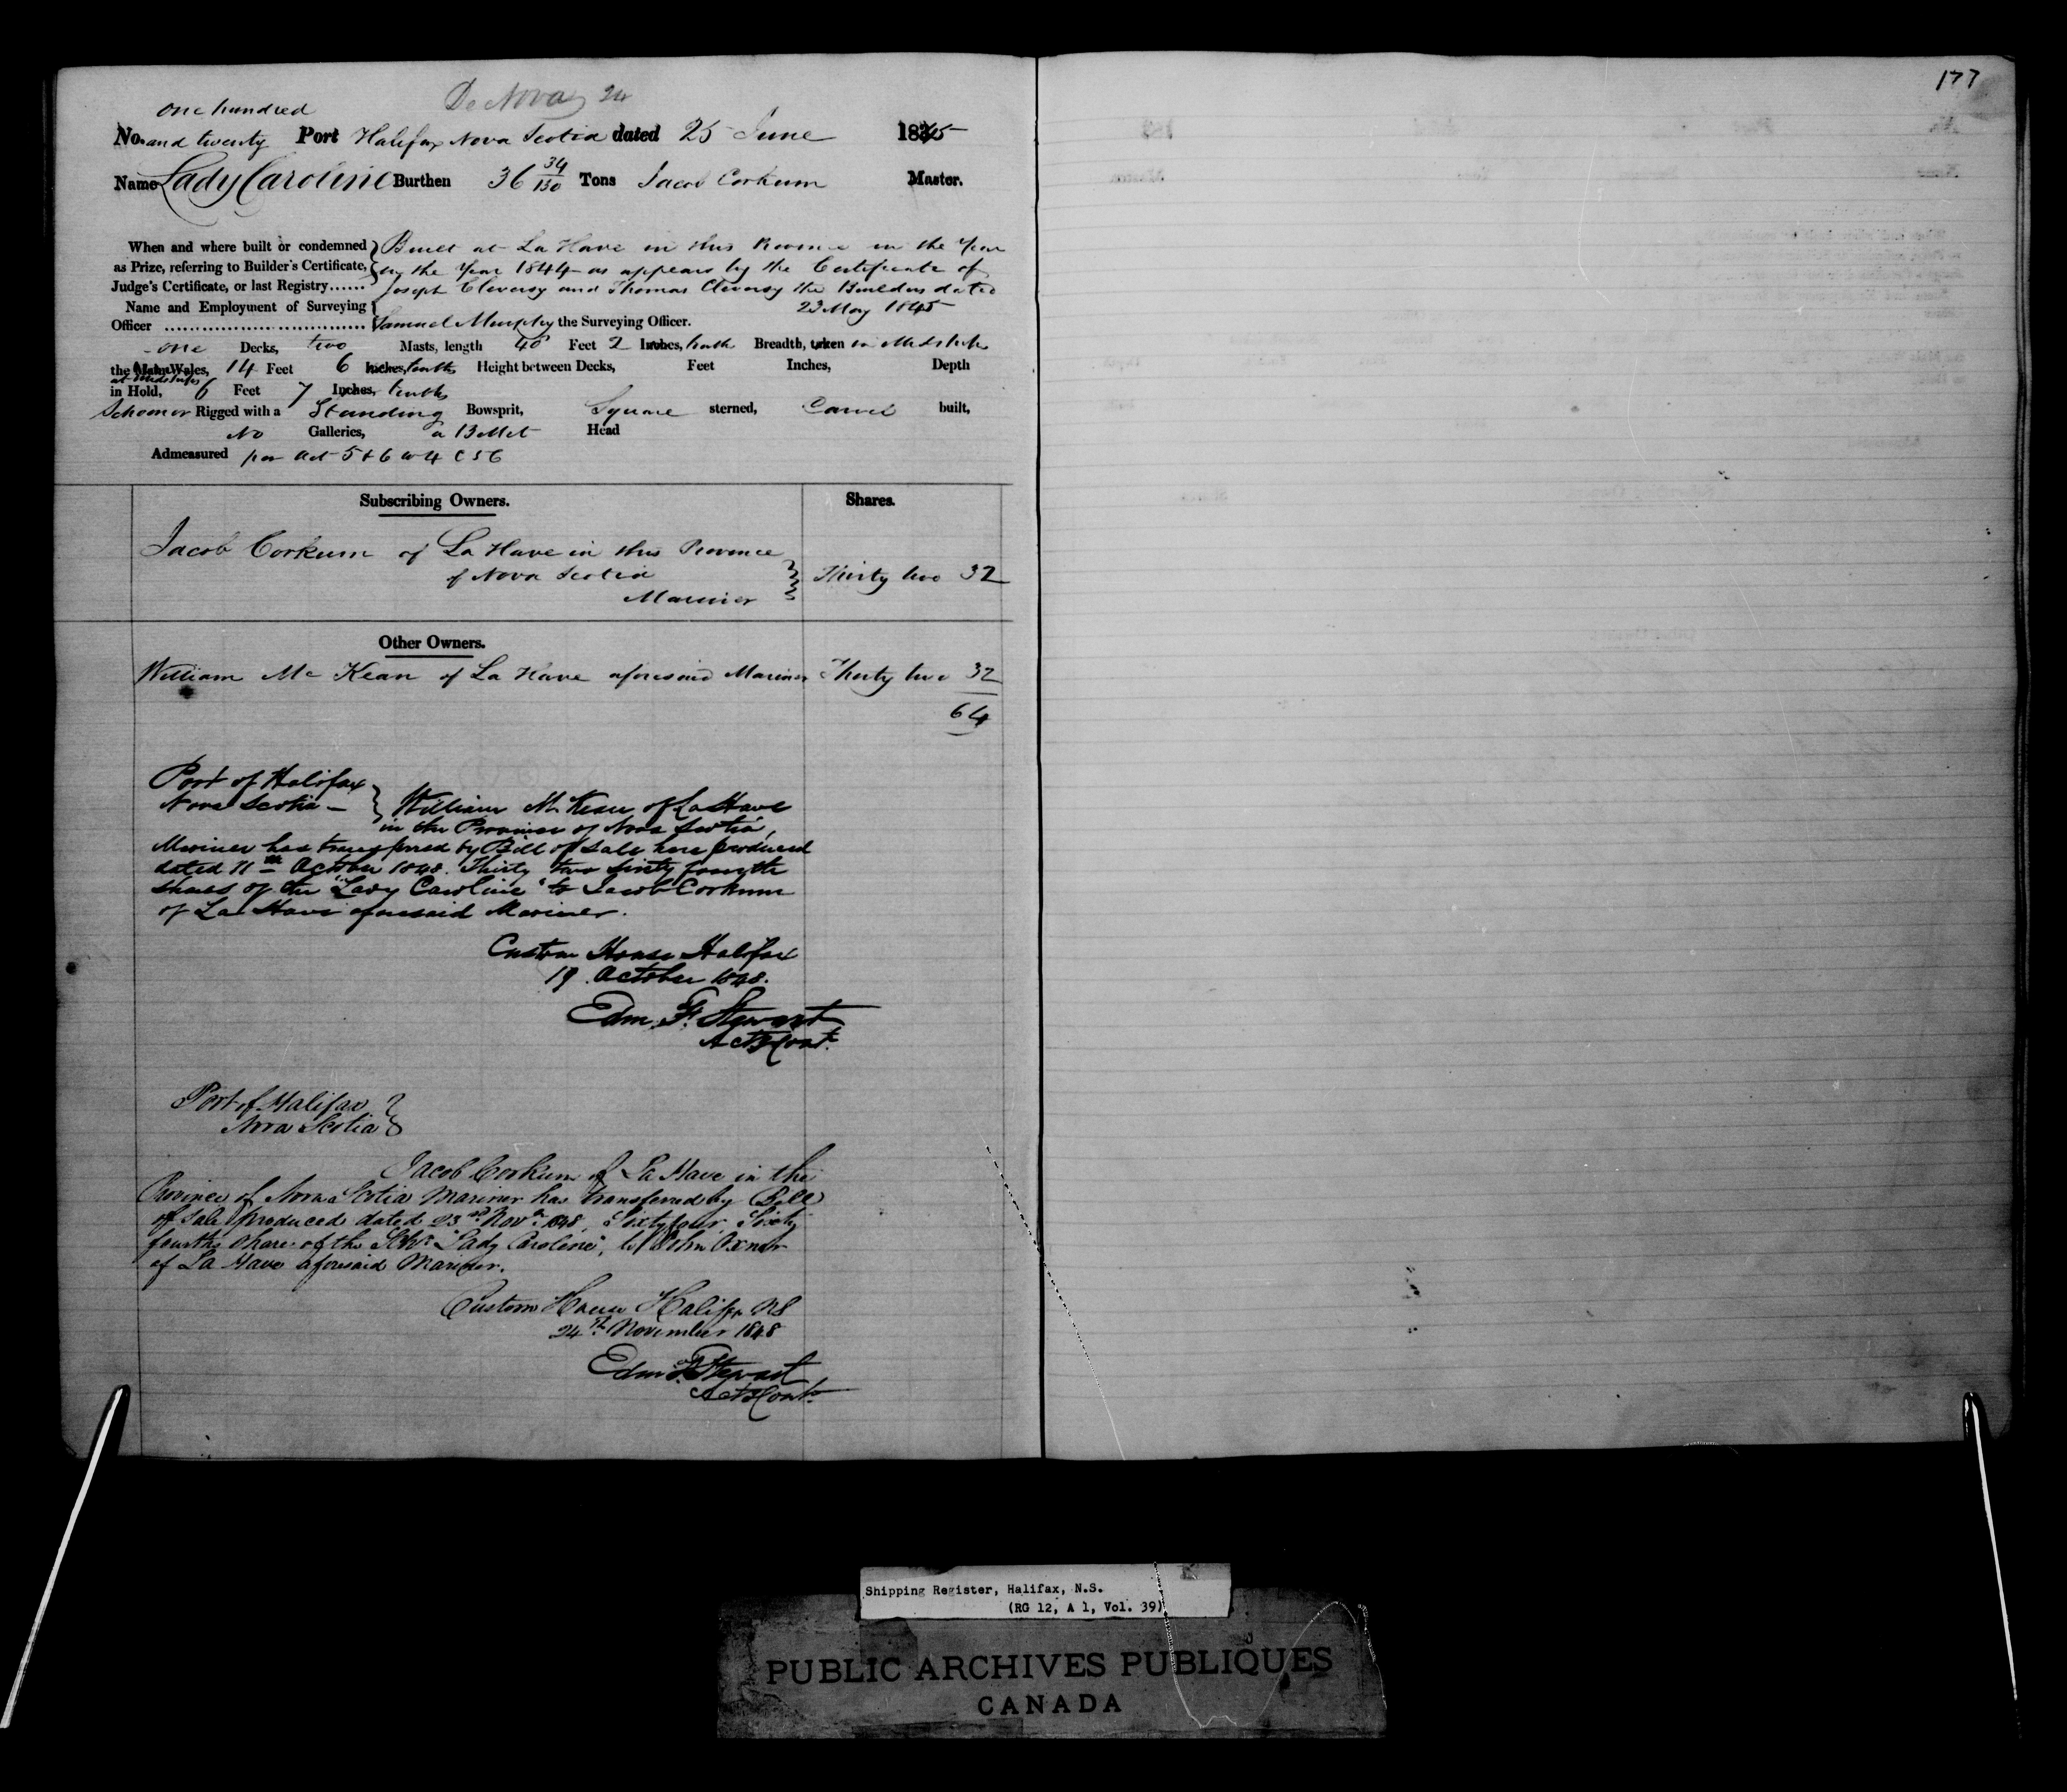 177
De Novo 24
one hundred
No. and twenty Port Halifax Nova Scotia dated 25 June 1845
Name Lady Caroline Burthen 36 34/130 Tons Jacob Corkum Master.
When and where built or condemned } Built at La Have in this Province in the Year
as Prize, referring to Builder's Certificate, { in the Year 1844 as appears by the Certificate of
Judge's Certificate, or last Registry...... Joseph Cleversy and Thomas Cleversy the Builders dated
Name and Employment of Surveying { 23 May 1845
Officer ................................ Samuel Murphy the Surveying Officer.
one Decks, two Masts, length 40 Feet 2 Inches, tenths Breadth, taken in Midships
the Main Wales, 14 Feet 6 Inches, tenths Height between Decks, Feet Inches, Depth
at Midships
in Hold, 6 Feet 7 Inches, tenths
Schooner Rigged with a Standing Bowsprit, Square sterned, Carvel built,
No Galleries, a Billet Head
Admeasured per Act 5 & 6 W 4 C 56
Subscribing Owners. Shares.
Jacob Corkum of La Have in this Province
of Nova Scotia } Thirty two 32
Mariner
Other Owners.
William Mc Kean of La Have aforesaid Mariner Thirty two 32
64
Port of Halifax
Nova Scotia - } William Mc Kean of La Have
in the Province of Nova Scotia,
Mariner has transferred by Bill of Sale here produced
dated 11th October 1848. Thirty two Sixty fourth
shares of the "Lady Caroline" to Jacob Corkum
of La Have aforesaid Mariner.
Custom House Halifax
19 October 1848.
Edm. F. Stewart
Act Cont.
Port of Halifax }
Nova Scotia
Jacob Corkum of La Have in the
Province of Nova Scotia Mariner has transferred by Bill
of Sale produced dated 23rd Novr. 1848, Sixty four Sixty
fourths Shares of the Schr. "Lady Caroline", to John Oxner
of La Have aforesaid Mariner.
Custom House Halifax NS
24th November 1848
Edm F. Stewart
Act Cont.
Shipping Register, Halifax, N.S.
(RG 12, A 1, Vol. 39)
PUBLIC ARCHIVES PUBLIQUES
CANADA